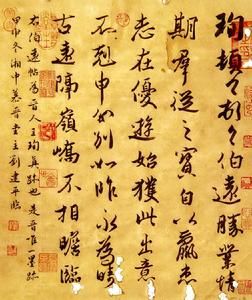 珣頓首頓首伯遠勝業情
期羣從之寶自以羸患
志在優遊始獲此出意
不剋申分別如昨永為疇
古遠隔嶺嶠不相瞻臨
右伯遠帖為晉人王珣真跡也是晉唯一墨跡
甲申冬湘中慕晉堂主劉建平臨